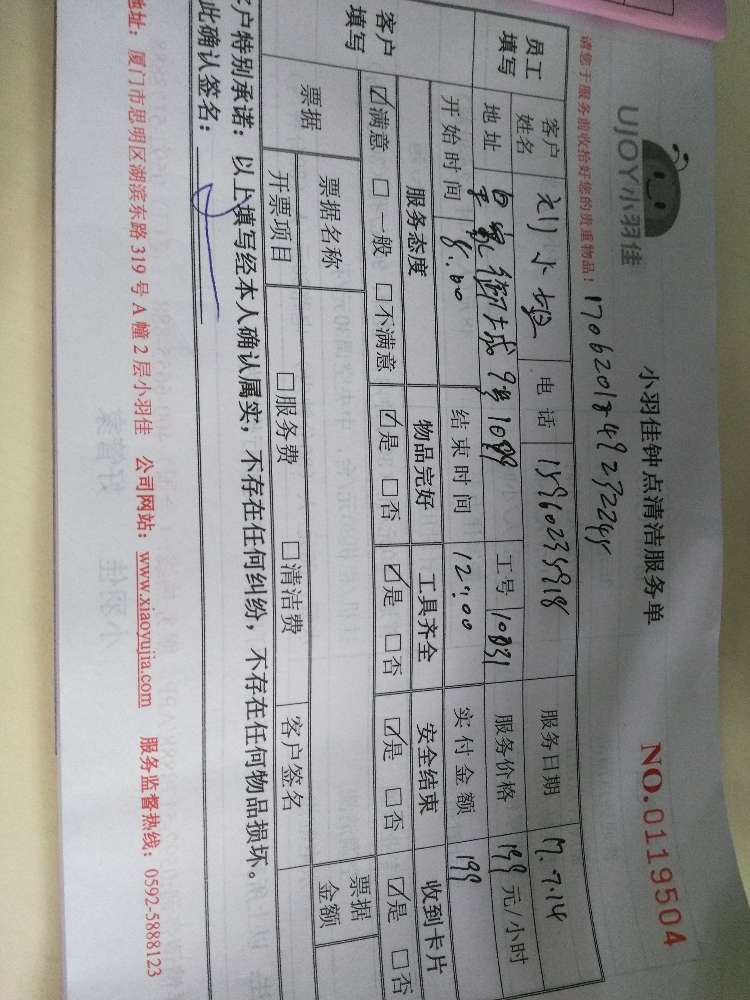 UJOY小羽佳
小羽佳钟点清洁服务单
NO.0119504
请您于服务前收拾好您的贵重物品!
员工填写 客户姓名 刘小姐 电话 服务日期 17.7.14
地址 9号1099 工号 10831 服务价格 199 元/小时
开始时间 8:00 结束时间 12:00 实付金额 199
客户填写 服务态度 物品完好 工具齐全 安全结束 收到卡片
☑满意 □一般 □不满意 ☑是 □否 ☑是 □否 ☑是 □否 ☑是 □否
票据 票据名称 票据金额
开票项目 □服务费 □清洁费 客户签名
户特别承诺:以上填写经本人确认属实,不存在任何纠纷,不存在任何物品损坏。
此确认签名:
地址:厦门市思明区湖滨东路 319 号 A 幢 2 层小羽佳 公司网站:www.xiaoyujia.com 服务监督热线:0592-5888123